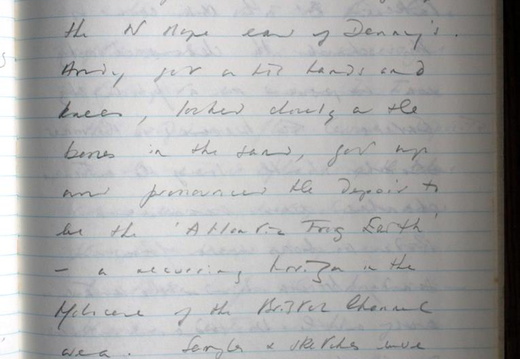 the N slope east of Denny's.
Andy got on his hands and
knees, looked closely at the
bones in the sand, got up
and pronounced the deposit to
be the 'Atlantic Frog Earth'
- a recurring horizon in the
Holocene of the Bristol Channel
area. Samples & sketches were